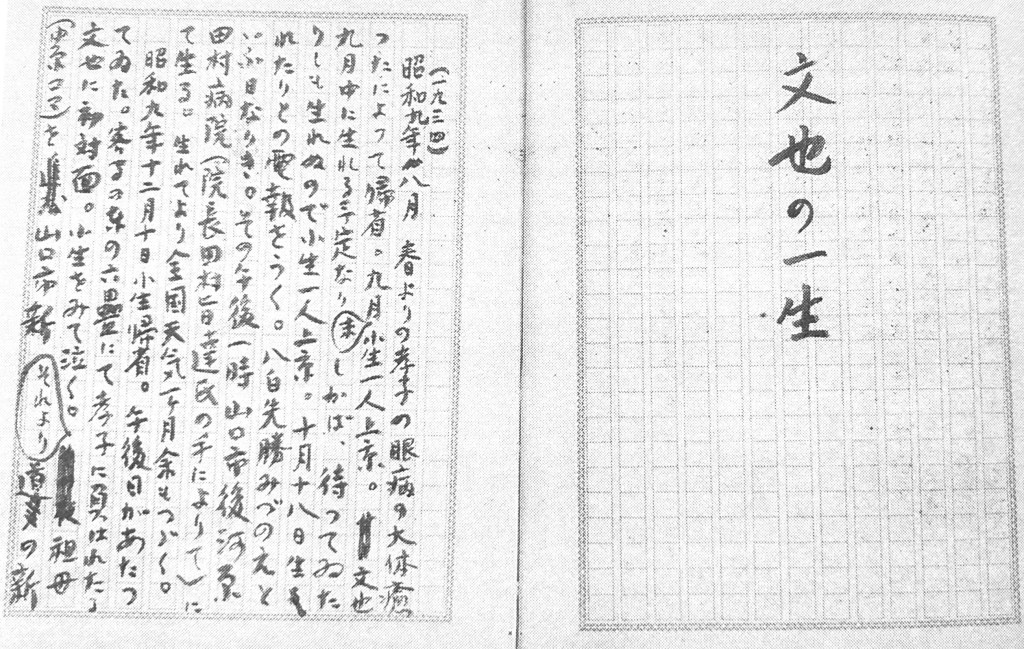 文也の一生
(一九三四)
昭和九年八月 春よりの孝子の眼病の大体癒
つたによつて帰省。九月末小生一人上京。文也
九月中に生れる予定なりしかば、待つてゐた
りしも生れぬので小生一人上京。十月十八日生
れたりとの電報をうく。八白先勝みづのえと
いふ日なりき。その午後一時山口市後河原
田村病院(院長田村旨達氏の手によりて)に
て生る。生れてより全国天気一ヶ月余もつゞく。
昭和九年十二月十日小生帰省。午後日があたつ
てゐた。客間の東の六畳にて孝子に負はれたる
文也に初対面。小生をみて泣く。それより祖母
(中原コマ)を山口市新道の新